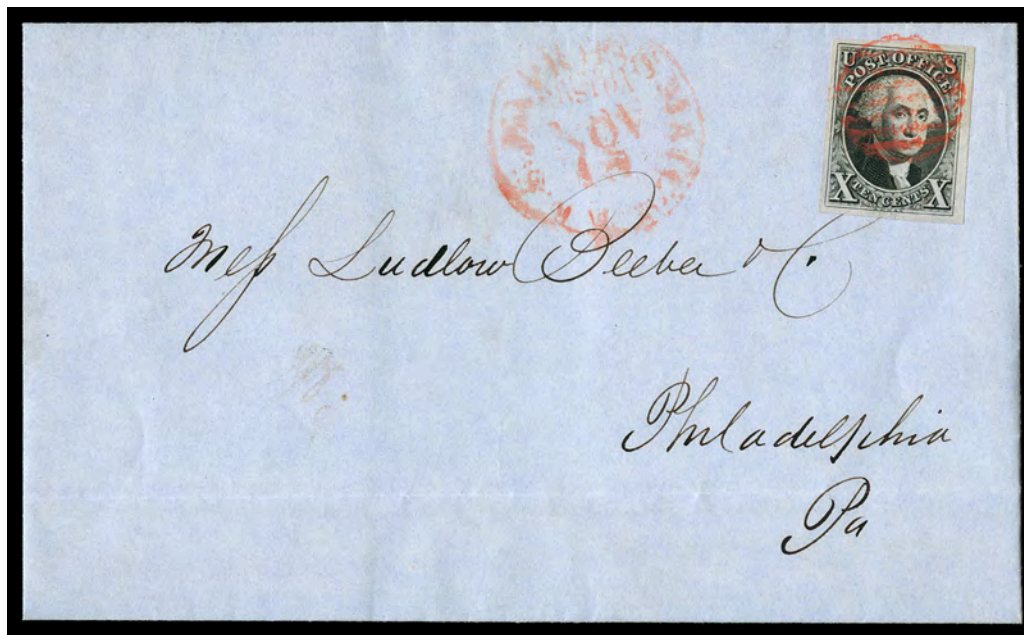 U S
POST OFFICE
X TEN CENTS X
Mess Ludlow Beeber & C.
Philadelphia
Pa